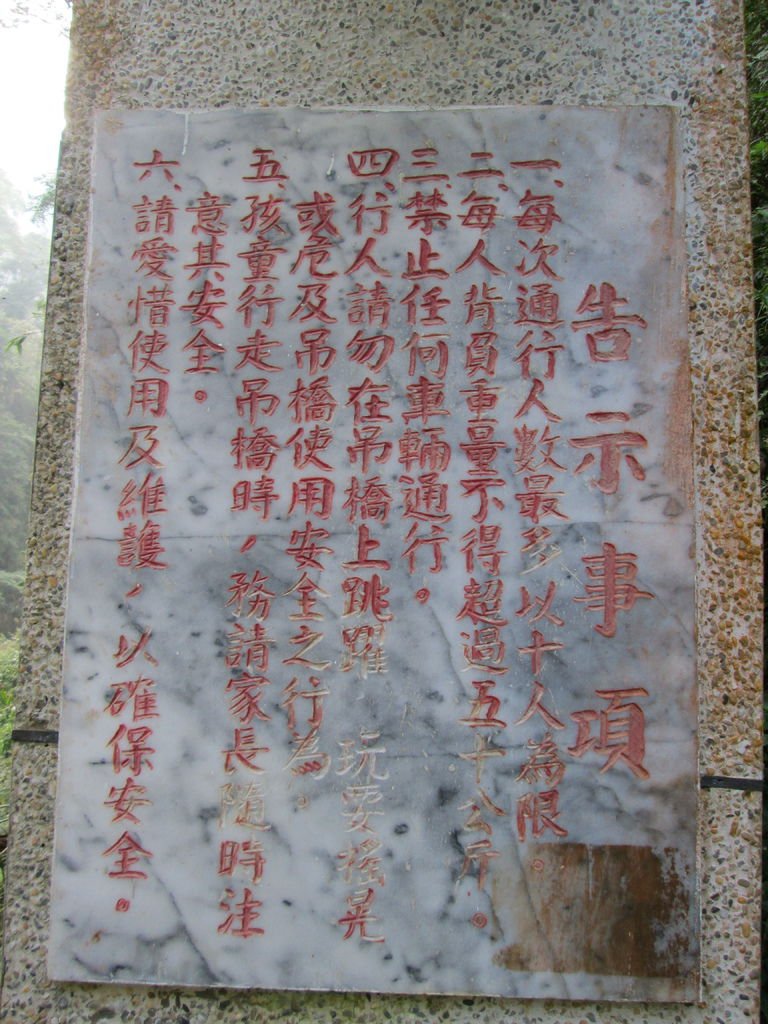 告示事項
一、每次通行人數最多以十人為限。
二、每人背負重量不得超過五十公斤。
三、禁止任何車輛通行。
四、行人請勿在吊橋上跳躍，玩耍搖晃
或危及吊橋使用安全之行為。
五、孩童行走吊橋時，務請家長隨時注
意其安全。
六、請愛惜使用及維護，以確保安全。